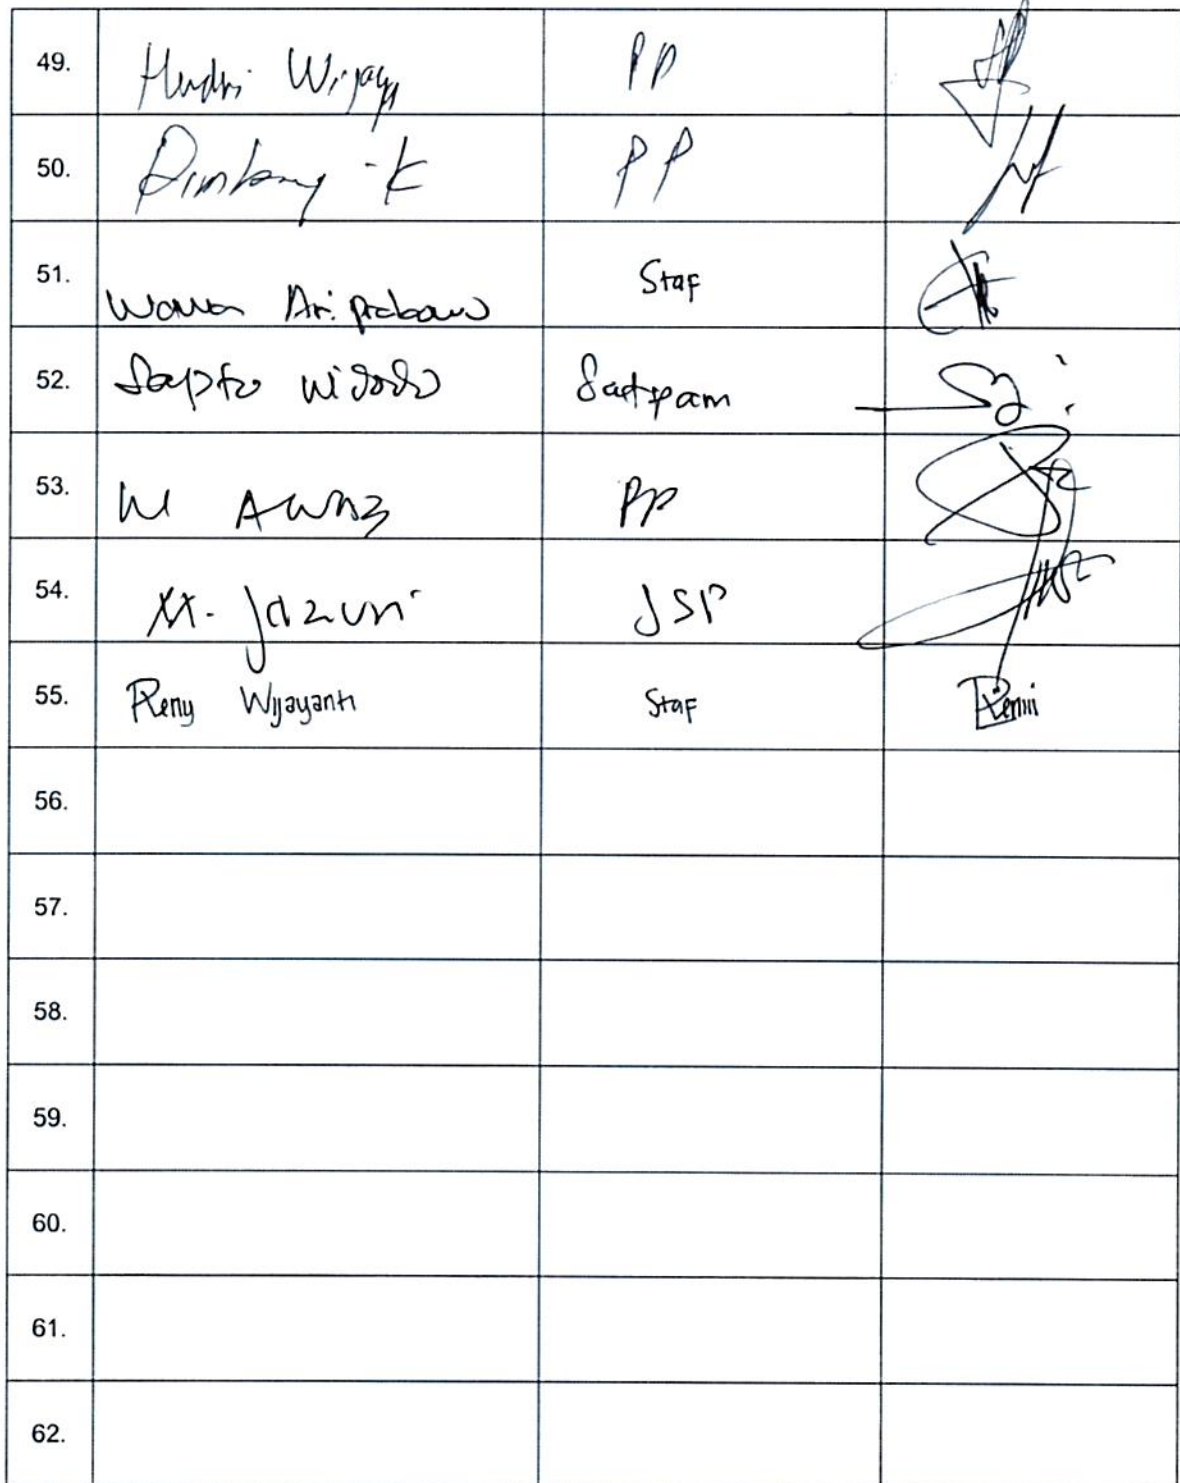 49. Hendri Wijaya PP
50. Bimbang - K PP
51. Wawan Ari Prabowo Staf
52. Sapto Widodo Satpam
53. M AWANG PP
54. M. Jazuri JSP
55. Reny Wijayanti Staf Reni
56.
57.
58.
59.
60.
61.
62.